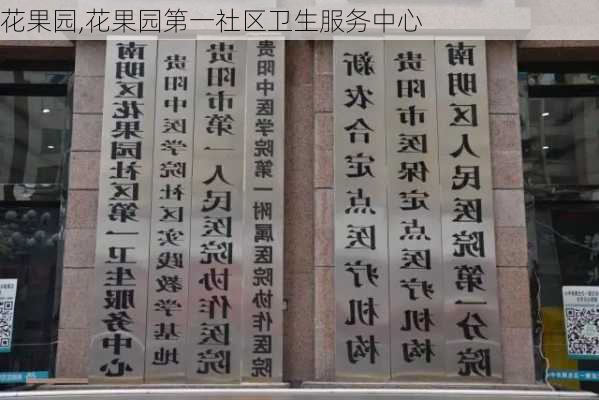 花果园,花果园第一社区卫生服务中心
南明区花果园社区第一卫生服务中心
贵阳中医学院社区实践教学基地
贵阳市第一人民医院协作医院
贵阳中医学院第一附属医院协作医院
新农合定点医疗机构
贵阳市医保定点医疗机构
南明区人民医院第一分院